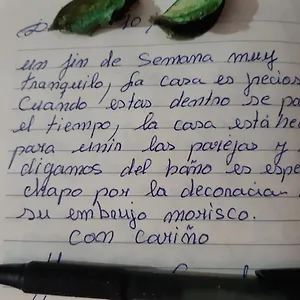 un fin de semana muy
tranquilo, la casa es precios
Cuando estas dentro se pa
el tiempo, la casa está he
para unir las parejas y
digamos del baño es espe
chapo por la decoracia
su embrujo morisco.
Con cariño